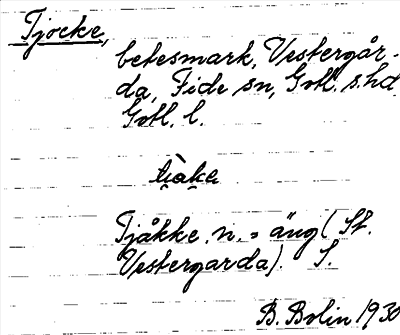 Tjocke,
betesmark, Vestergår-
da, Fide sn, Gotl. s. hd
Gotl. l.
Tjåkke, n. = äng (St.
Vestergarda). S.
B. Bolin 1930